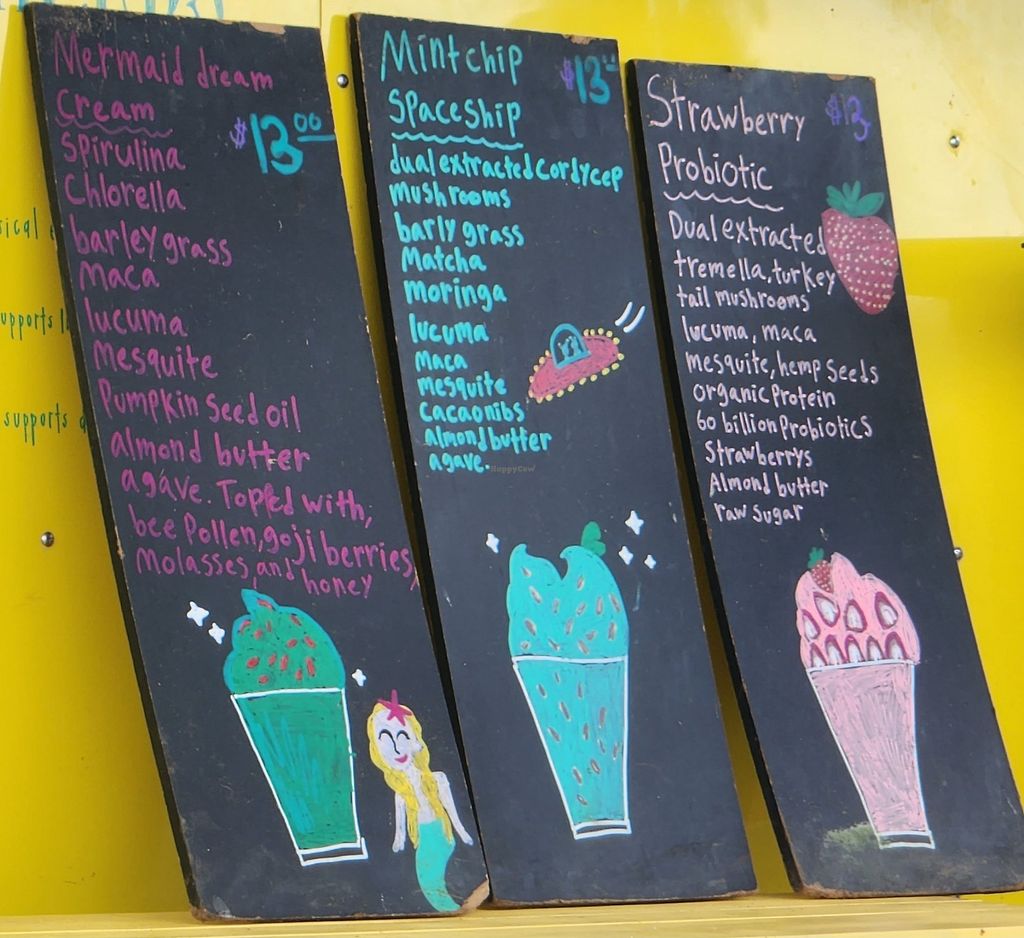 Mermaid dream
Cream
$13.00
Spirulina
Chlorella
barley grass
maca
lucuma
Mesquite
Pumpkin Seed oil
almond butter
agave. Topped with,
bee Pollen, goji berries,
Molasses, and honey
Mint chip
$13
Spaceship
dual extracted cordycep
mushrooms
barly grass
Matcha
moringa
lucuma
maca
mesquite
Cacao nibs
almond butter
agave.
HappyCow
Strawberry
$13
Probiotic
Dual extracted
tremella, turkey
tail mushrooms
lucuma, maca
mesquite, hemp Seeds
organic Protein
60 billion Probiotics
Strawberrys
Almond butter
raw Sugar
supports